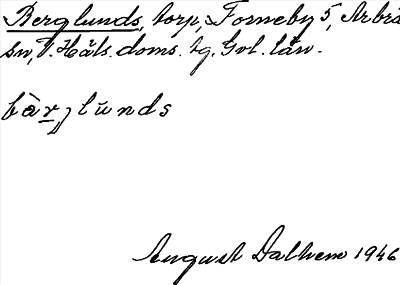 Berglunds, torp, Forneby 5, Arbrå
sn, V. Häls. doms. tg. Gvl. län.
bär̲jlunds
August Dalhem 1946